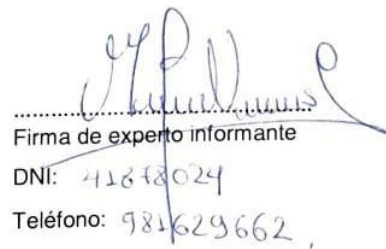 Firma de experto informante
DNI: 41878024
Teléfono: 981629662